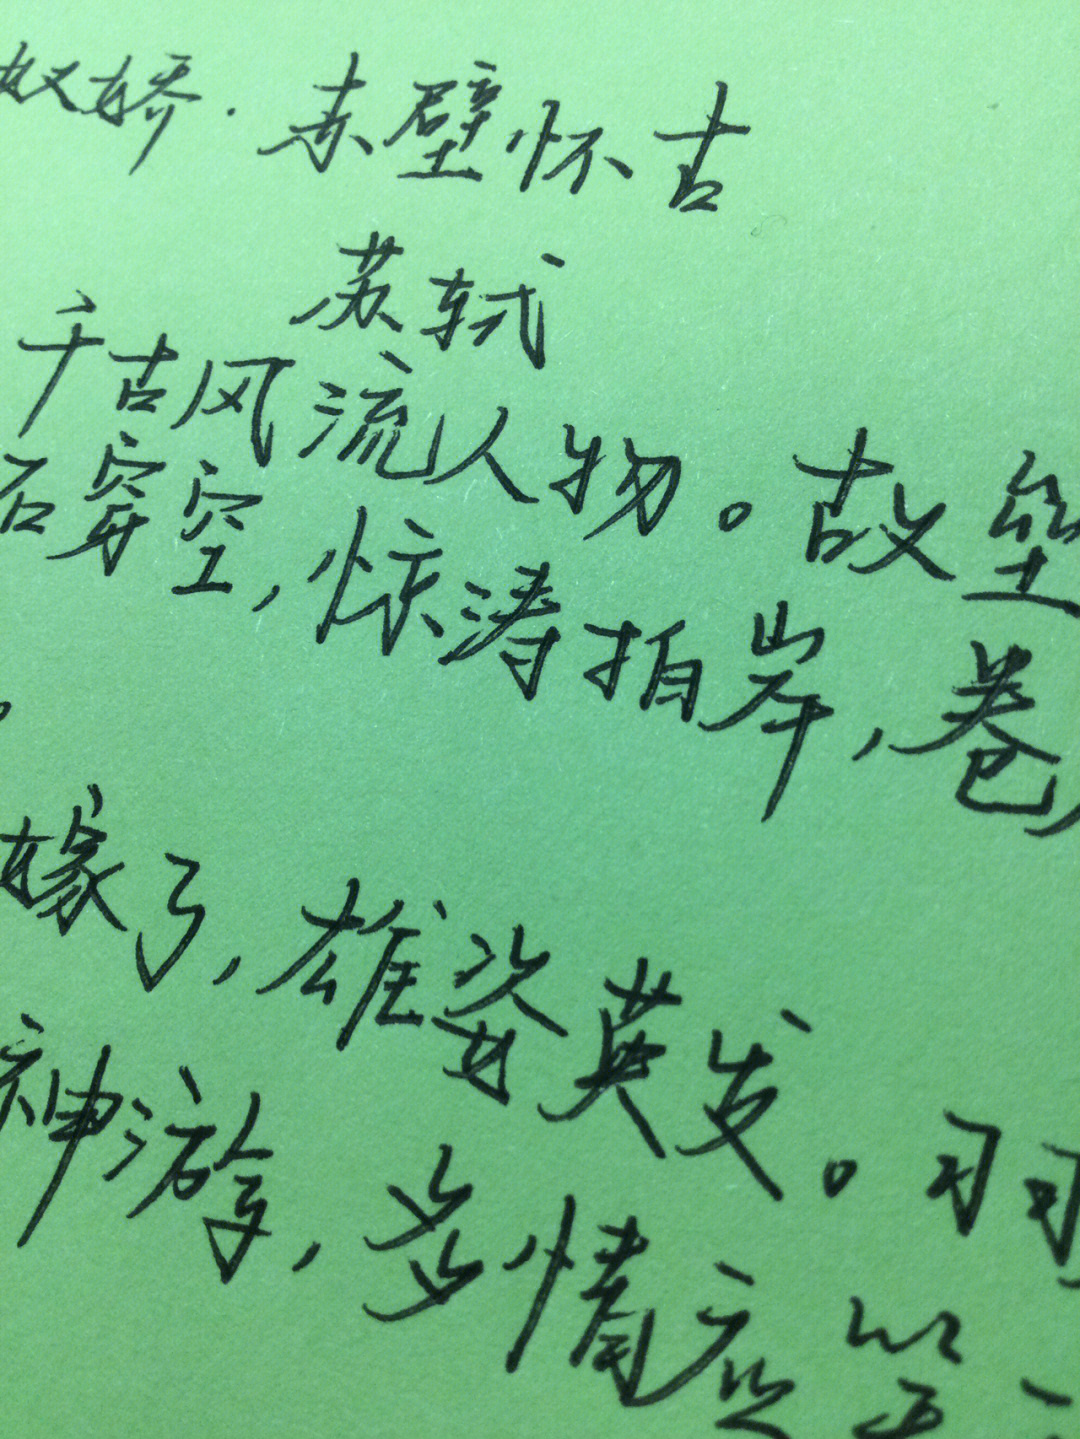 奴娇·赤壁怀古
苏轼
千古风流人物。故垒
石穿空,惊涛拍岸,卷
。
嫁了,雄姿英发。羽
神游,多情应笑